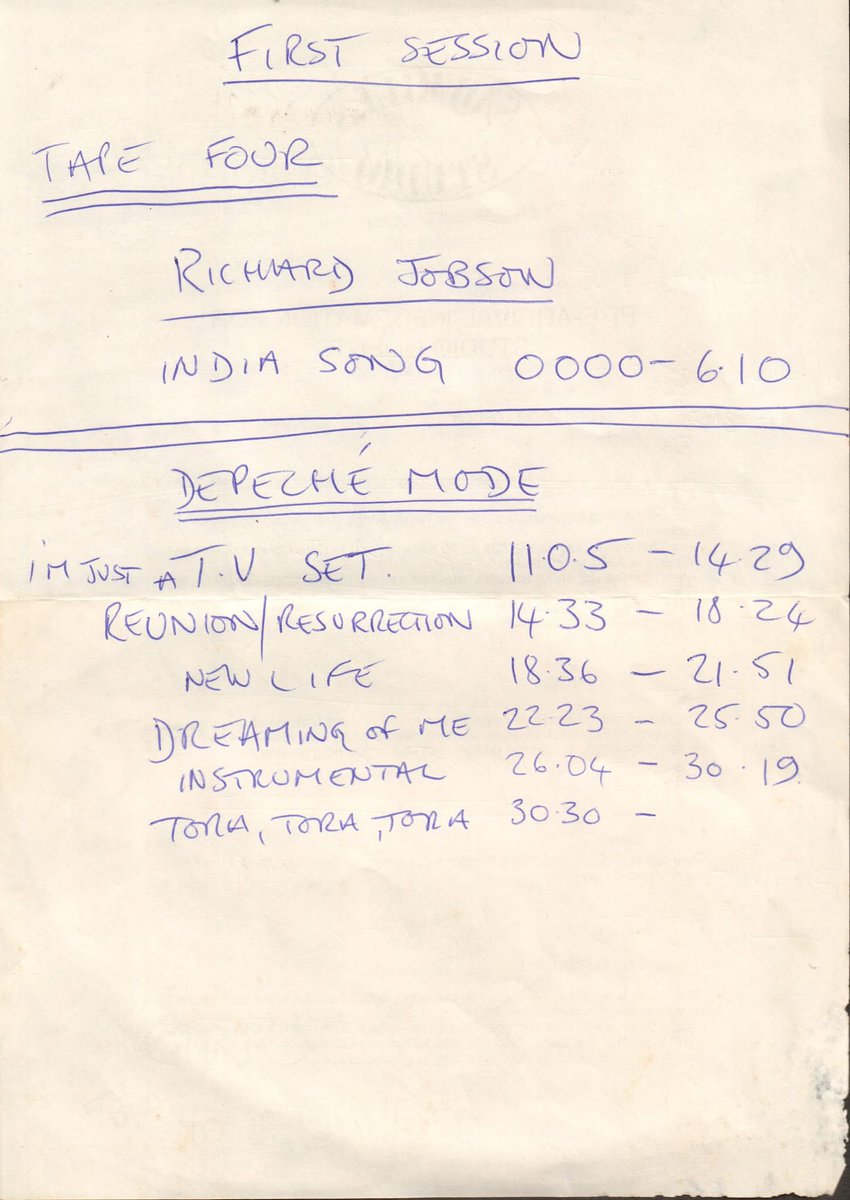 FIRST SESSION
TAPE FOUR
RICHARD JOBSON
INDIA SONG 0000 - 6.10
DEPECHÉ MODE
I'M JUST A T.V SET. 11.0.5 - 14.29
REUNION/RESURRECTION 14.33 - 18.24
NEW LIFE 18.36 - 21.51
DREAMING of ME 22.23 - 25.50
INSTRUMENTAL 26.04 - 30.19
TORA, TORA, TORA 30.30 -